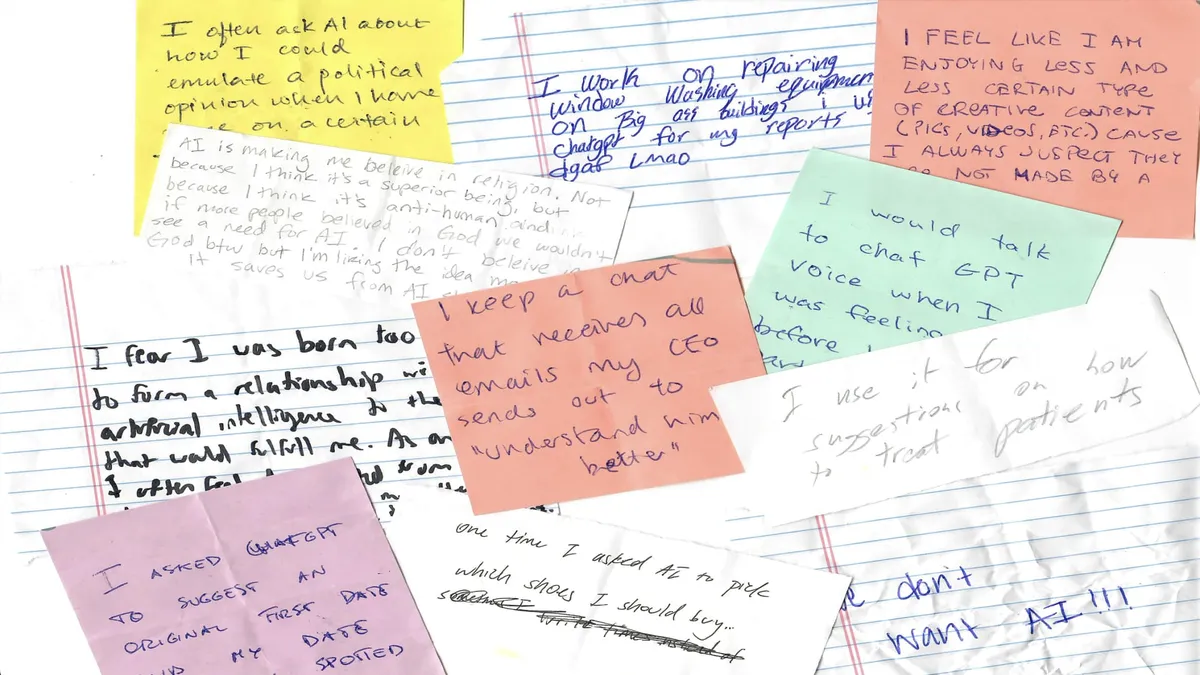 I often ask AI about
how I could
emulate a political
opinion when I have
on a certain
I work on repairing
window washing equipmen
on Big ass buildings i us
chatgpt for my reports
dgaf Lmao
I FEEL LIKE I AM
ENJOYING LESS AND
LESS CERTAIN TYPE
OF CREATIVE CONTENT
(PICS, VIDEOS, ETC.) CAUSE
I ALWAYS SUSPECT THEY
NOT MADE BY A
AI is making me beleive in religion. Not
because I think it's a superior being, but
because I think it's anti-human and
if more people believed in God we wouldn't
see a need for AI. I don't beleive
God btw but I'm liking the idea
it saves us from AI
I would talk
to chat GPT
voice when I
was feeling
before
I fear I was born too
to form a relationship wi
artificial intelligence to the
that would fulfill me. As an
I often feel from
I keep a chat
that receives all
emails my CEO
sends out to
"understand him
better"
I use it for
suggestions on how
to treat patients
I ASKED CHATGPT
TO SUGGEST AN
ORIGINAL FIRST DATE
MY DATE
SPOTTED
one time I asked AI to pick
which shoes I should buy...
don't
want AI!!!